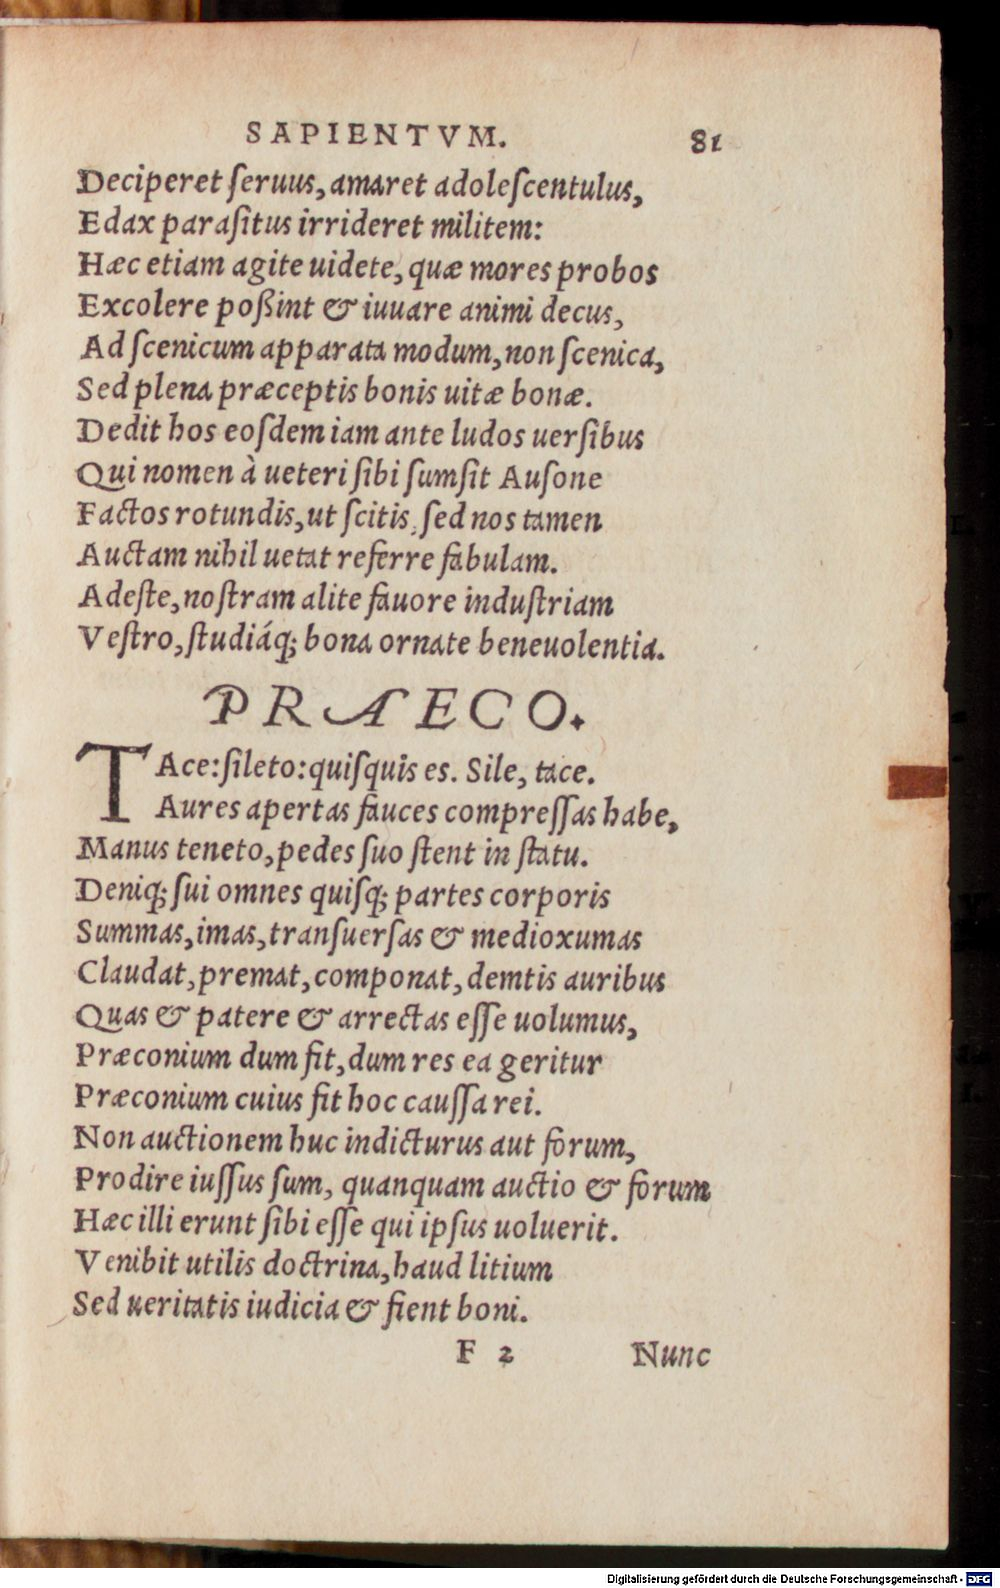 SAPIENTVM. 81
Deciperet ſeruus, amaret adoleſcentulus,
Edax paraſitus irrideret militem:
Hæc etiam agite uidete, quæ mores probos
Excolere poßint & iuuare animi decus,
Ad ſcenicum apparata modum, non ſcenica,
Sed plena præceptis bonis uitæ bonæ.
Dedit hos eoſdem iam ante ludos uerſibus
Qui nomen à ueteri ſibi ſumſit Auſone
Factos rotundis, ut ſcitis, ſed nos tamen
Auctam nihil uetat referre fabulam.
Adeſte, noſtram alite fauore induſtriam
Veſtro, ſtudiáq; bona ornate beneuolentia.
PRÆCO.
TAce: ſileto: quiſquis es. Sile, tace.
Aures apertas fauces compreſſas habe,
Manus teneto, pedes ſuo ſtent in ſtatu.
Deniq; ſui omnes quiſq; partes corporis
Summas, imas, tranſuerſas & medioxumas
Claudat, premat, componat, demtis auribus
Quas & patere & arrectas eſſe uolumus,
Præconium dum fit, dum res ea geritur
Præconium cuius fit hoc cauſſa rei.
Non auctionem huc indicturus aut forum,
Prodire iuſſus ſum, quanquam auctio & forum
Hæc illi erunt ſibi eſſe qui ipſus uoluerit.
Venibit utilis doctrina, haud litium
Sed ueritatis iudicia & fient boni.
F 2 Nunc
Digitalisierung gefördert durch die Deutsche Forschungsgemeinschaft - DFG